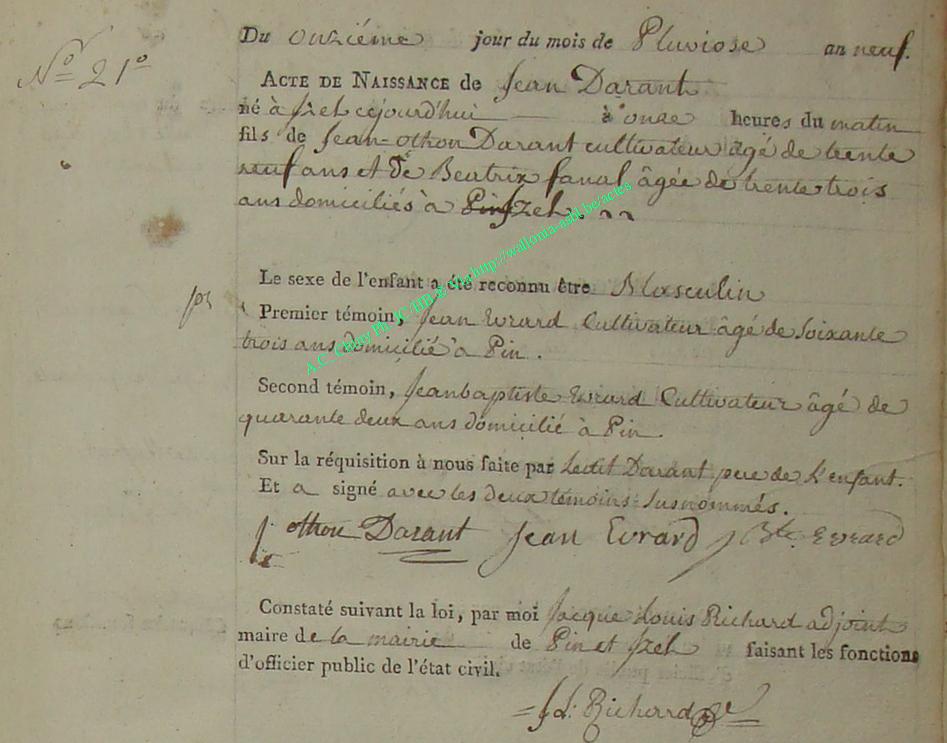 N.º 21º
Du onziéme jour du mois de Pluviose an neuf.
ACTE DE NAISSANCE de Jean Darant
né à Izel cejourd'hui à onze heures du matin
fils de Jean-othon Darant cultivateur âgé de trente
neuf ans et de Beatrix fanal âgée de trente trois
ans domiciliés à Pin Izel.
Le sexe de l'enfant a été reconnu être Masculin
Premier témoin, Jean Evrard Cultivateur âgé de Soixante
trois ans domicilié à Pin.
Second témoin, Jeanbaptiste Evrard Cultivateur âgé de
quarante deux ans domicilié à Pin.
Sur la réquisition à nous faite par Ledit Darant pere de L'enfant.
Et a signé avec les deux témoins Susnommés.
j othon Darant Jean Evrard j Bte Evrard
Constaté suivant la loi, par moi Jacque Louis Richard adjoint
maire de la mairie de Pin et Izel faisant les fonctions
d'officier public de l'état civil.
J L. Richard
A.C. Chiny Ph. JC/HB & c http://wallonia-asbl.be/actes